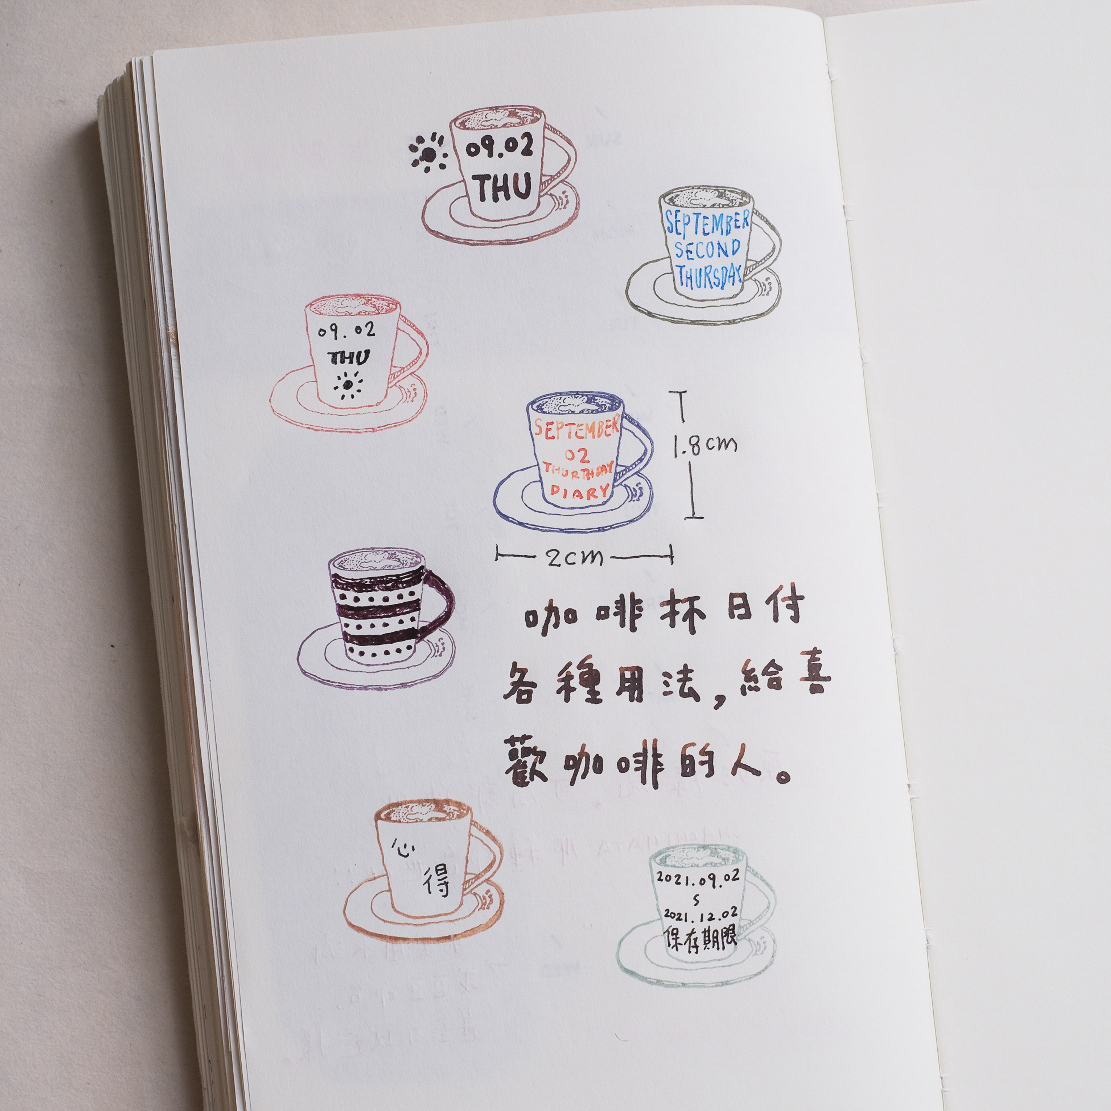 09.02
THU
SEPTEMBER
SECOND
THURSDAY
09.02
THU
SEPTEMBER
02
THURTHDAY
DIARY
1.8cm
2cm
咖啡杯日付
各種用法,給喜
歡咖啡的人。
心
得
2021.09.02
S
2021.12.02
保存期限